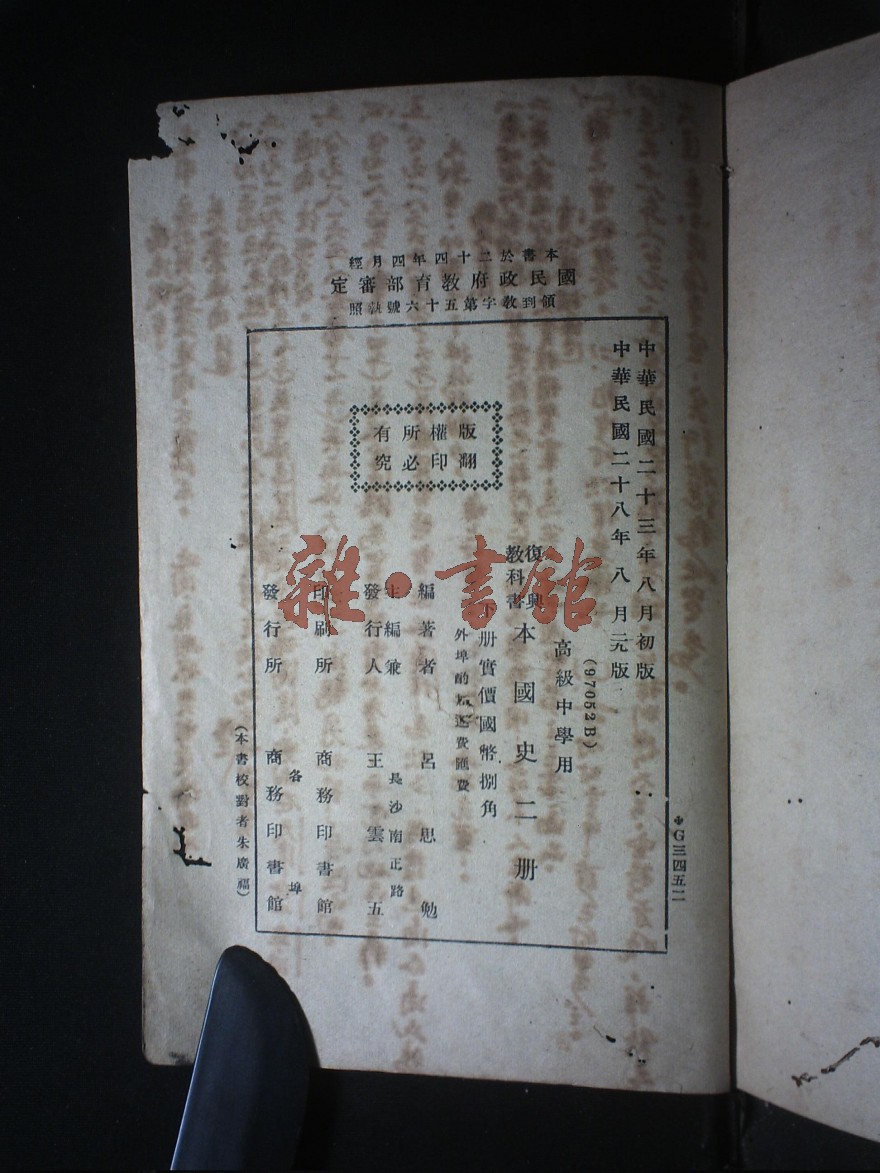 本書於二十四年四月經
國民政府教育部審定
領到教字第五十六號執照
中華民國二十三年八月初版
中華民國二十八年八月元版
(97052B)
高級中學用
復興教科書 本國史二冊
下冊實價國幣捌角
外埠酌加運費匯費
版權所有
翻印必究
編著者 呂思勉
主編兼發行人 王雲五
長沙南正路
印刷所 商務印書館
發行所 商務印書館
各埠
(本書校對者朱廣福)
G三四五二
雜·書館